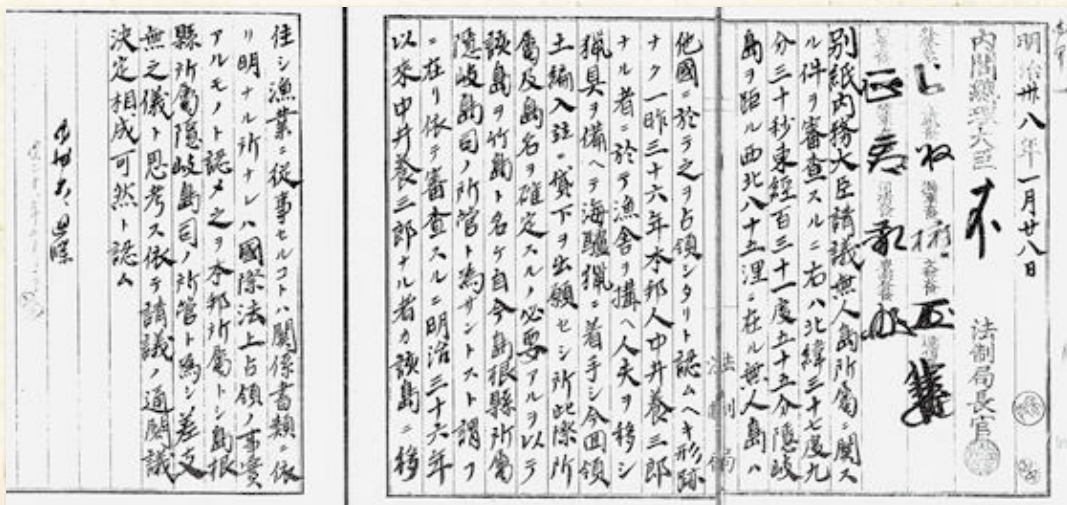 明治卅八年一月廿八日
内閣總理大臣
法制局長官
別紙内務大臣請議無人島所屬ニ関ス
ル件ヲ審査スルニ右ハ北緯三十七度九
分三十秒東経百三十一度五十五分隠岐
島ヲ距ル西北八十五浬ニ在ル無人島ハ
他國ニ於テ之ヲ占領シタリト認ムヘキ形跡
ナク一昨三十六年本邦人中井養三郎
ナル者ニ於テ漁舎ヲ構ヘ人夫ヲ移シ
猟具ヲ備ヘテ海驢猟ニ着手シ今回領
土編入並ニ貸下ヲ出願セシ所此際所
屬及島名ヲ確定スルノ必要アルヲ以テ
該島ヲ竹島ト名ケ自今島根縣所屬
隠岐島司ノ所管ト為サントスト謂フ
ニ在リ依テ審査スルニ明治三十六年
以来中井養三郎ナル者カ該島ニ移
住シ漁業ニ從事セルコトハ關係書類ニ依
リ明ナル所ナレハ國際法上占領ノ事實
アルモノト認メ之ヲ本邦所屬トシ島根
縣所屬隠岐島司ノ所管ト為シ差支
無之儀ト思考ス依テ請議ノ通閣議
決定相成可然ト認ム
法制局